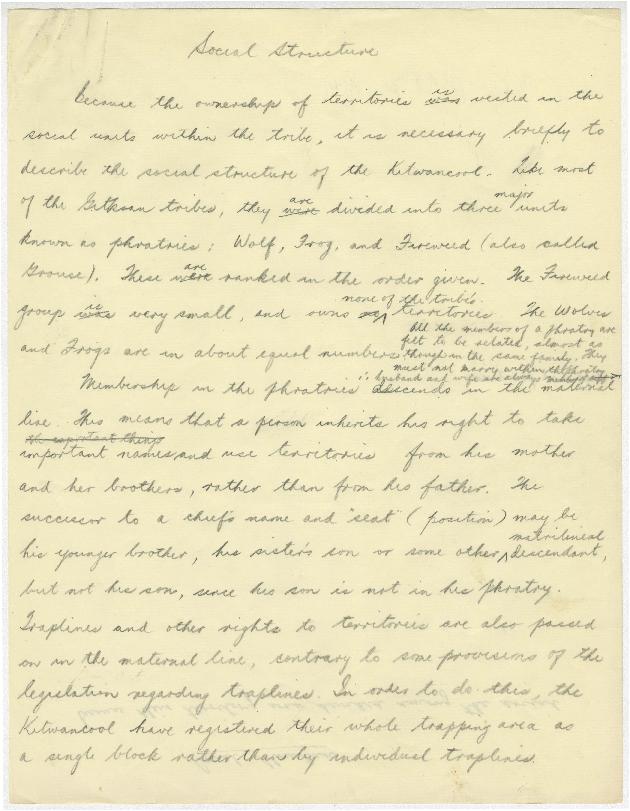 Social Structure
Because the ownership of territories was is vested in the
social units within the tribe, it is necessary briefly to
describe the social structure of the Kitwancool. Like most
of the Gitksan tribes, they were are divided into three major units
known as phratries: Wolf, Frog, and Fireweed (also called
Grouse). These were are ranked in the order given. The Fireweed
none of the tribe's
group was is very small, and owns no territories. The Wolves
All the members of a phratry are
felt to be related, almost as
and Frogs are in about equal numbers though in the same family. They
must not marry within the phratry
∴ husband and wife are always
Membership in the phratries descends in the maternal
line. This means that a person inherits his right to take
the important things
important names and use territories from his mother
and her brothers, rather than from his father. The
successor to a chief's name and "seat" (position) may be
matrilineal
his younger brother, his sister's son or some other descendant,
but not his son, since his son is not in his phratry.
Traplines and other rights to territories are also passed
on in the maternal line, contrary to some provisions of the
legislation regarding traplines. In order to do this, the
Kitwancool have registered their whole trapping area as
a single block rather than by individual traplines.